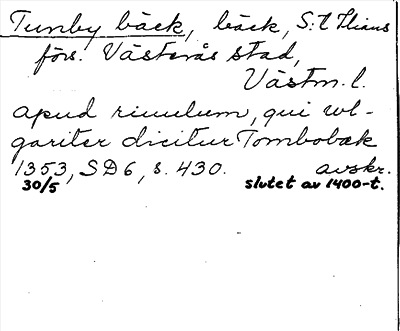 Tunby bäck, bäck, S:t Ilians
förs. Västerås stad,
Västm. l.
apud riuulum, qui wl-
gariter dicitur Tombobæk
1353, SD6, s. 430. avskr.
30/5 slutet av 1400-t.